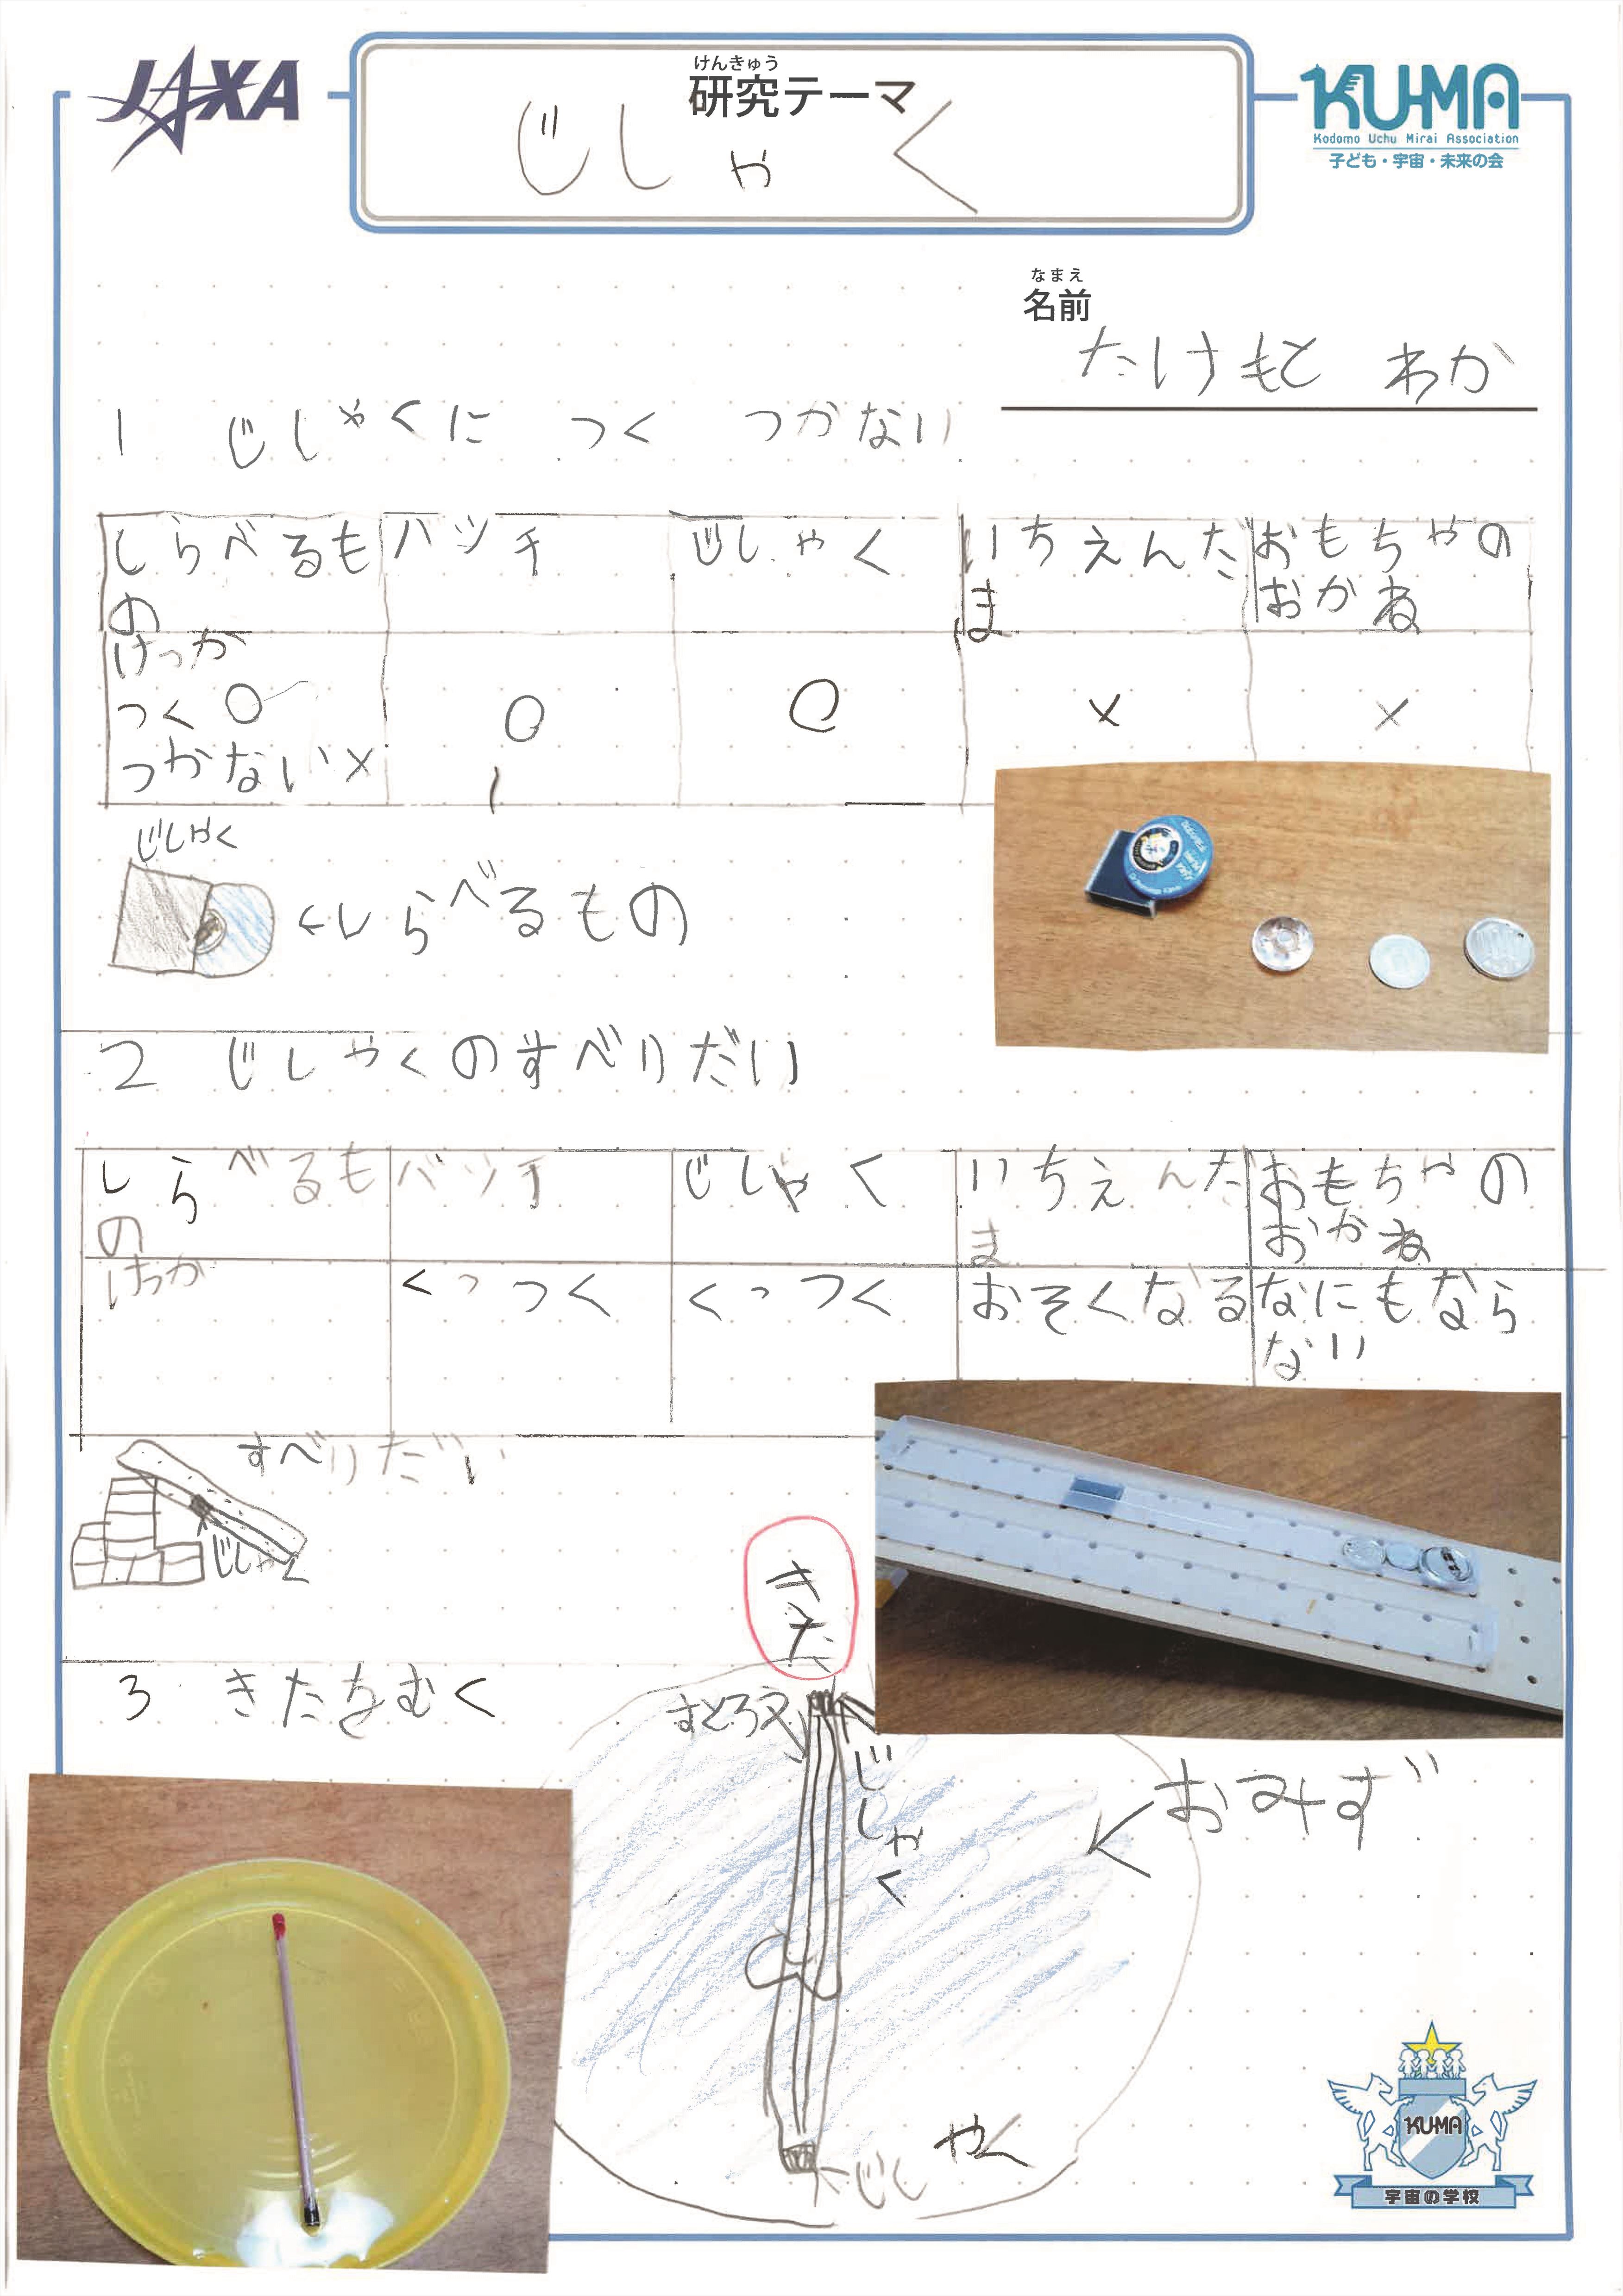 JAXA
けんきゅう
研究テーマ
じしゃく
KUMA
Kodomo Uchu Mirai Association
子ども・宇宙・未来の会
なまえ
名前
たけもと わか
1 じしゃくに つく つかない
しらべるもの バッチ じしゃく いちえんだま おもちゃのおかね
けっか
つく○
つかない× ○ ○ × ×
じしゃく
←しらべるもの
2 じしゃくのすべりだい
しらべるもの バッチ じしゃく いちえんだま おもちゃのおかね
けっか くっつく くっつく おそくなる なにもならない
すべりだい
じしゃく
きた
3 きたをむく
すとろう
じしゃく
おみず
じしゃく
KUMA
宇宙の学校